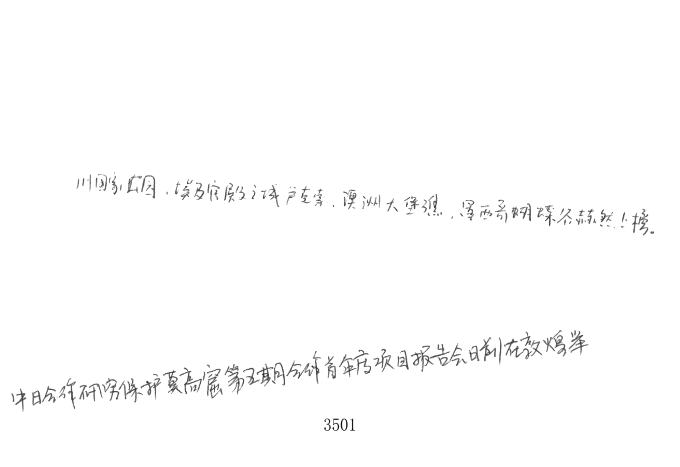 川国家公园，埃及宫殿之城卢克索，澳洲大堡礁，墨西哥蝴蝶谷赫然上榜。
中日合作研究保护莫高窟第五期合作首年度项目报告会日前在敦煌举
3501